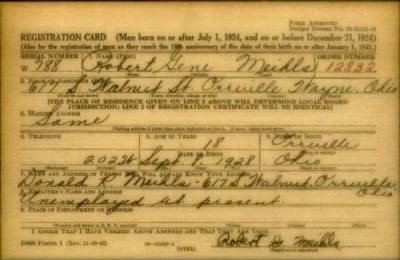 FORM APPROVED
REGISTRATION CARD (Men born on or after July 1, 1924, and on or before December 31, 1924)
(Also for the registration of men as they reach the 18th anniversary of the date of their birth on or after January 1, 1943.)
SERIAL NUMBER 1. NAME (Print) ORDER NUMBER
W 788 Robert Gene Meihls 12832
(First) (Middle) (Last)
2. PLACE OF RESIDENCE (Print)
617 S. Walnut St. Orrville Wayne Ohio
[THE PLACE OF RESIDENCE GIVEN ON LINE 2 ABOVE WILL DETERMINE LOCAL BOARD
JURISDICTION; LINE 2 OF REGISTRATION CERTIFICATE WILL BE IDENTICAL]
3. MAILING ADDRESS
Same
4. TELEPHONE 5. AGE IN YEARS 6. PLACE OF BIRTH
18 Orrville
DATE OF BIRTH
Sept. 1, 1928 Ohio
7. NAME AND ADDRESS OF PERSON WHO WILL ALWAYS KNOW YOUR ADDRESS
Donald R. Meihls - 617 S Walnut Orrville, Ohio
8. EMPLOYER'S NAME AND ADDRESS
Unemployed at present
9. PLACE OF EMPLOYMENT OR BUSINESS
I AFFIRM THAT I HAVE VERIFIED ABOVE ANSWERS AND THAT THEY ARE TRUE.
DSS Form 1 (OVER) Robert G. Meihls